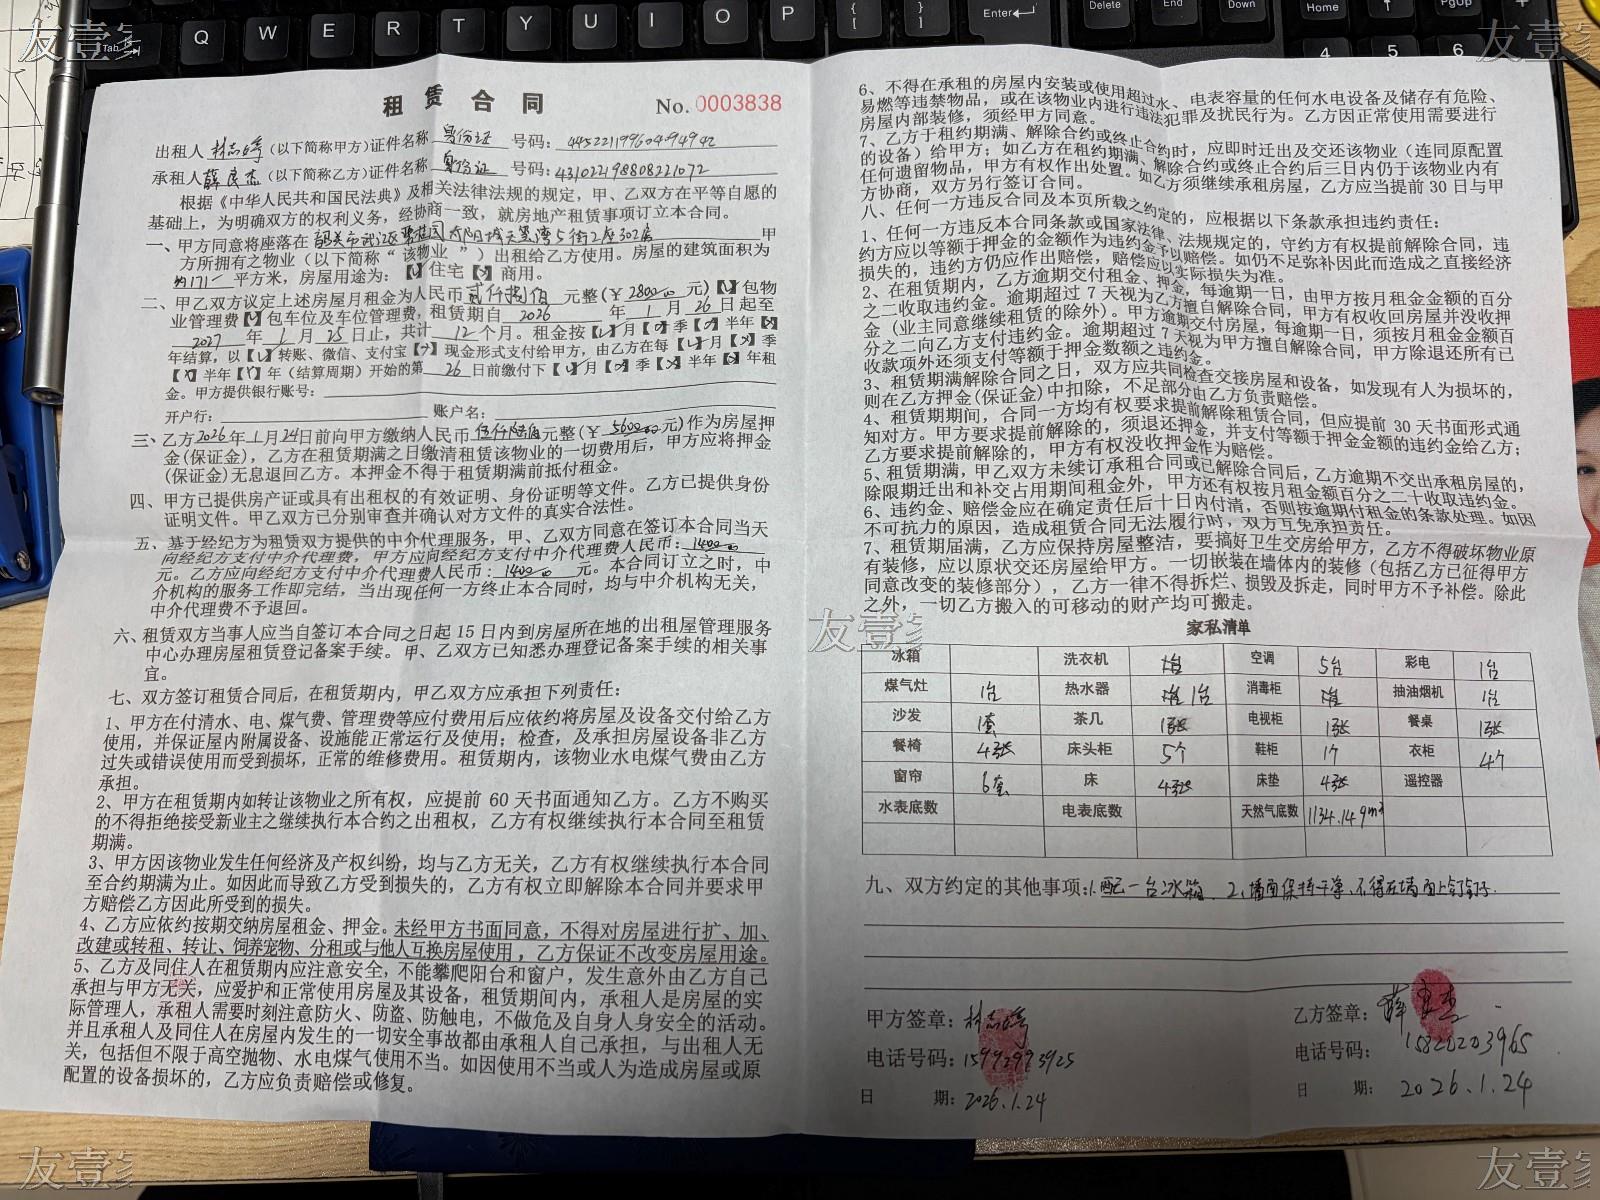 友壹家
友壹家
Tab
Q W E R T Y U I O P
Enter
Delete End Down
Home PgUp
4 5 6
租 赁 合 同 No. 0003838
出租人 (以下简称甲方)证件名称 身份证 号码:
承租人 薛良杰 (以下简称乙方)证件名称 身份证 号码: 431022198808221072
根据《中华人民共和国民法典》及相关法律法规的规定，甲、乙双方在平等自愿的
基础上，为明确双方的权利义务，经协商一致，就房地产租赁事项订立本合同。
一、甲方同意将座落在 韶关市武江区 太阳城天墨湾5街2座302房 甲
方所拥有之物业（以下简称“该物业”）出租给乙方使用。房屋的建筑面积为
约171 平方米，房屋用途为：【✓】住宅【×】商用。
二、甲乙双方议定上述房屋月租金为人民币 贰仟捌佰 元整(￥ 2800.00 元)【✓】包物
业管理费【✓】包车位及车位管理费，租赁期自 2026 年 1 月 26 日起至
2027 年 1 月 25 日止，共计 12 个月。租金按【✓】月【×】季【×】半年【×】
年结算，以【✓】转账、微信、支付宝【×】现金形式支付给甲方，由乙方在每【✓】月【×】季
【×】半年【×】年（结算周期）开始的第 26 日前缴付下【✓】月【×】季【×】半年【×】年租
金。甲方提供银行账号：
开户行： 账户名：
三、乙方2026年1月24日前向甲方缴纳人民币 伍仟陆佰 元整(￥ 5600.00 元)作为房屋押
金(保证金)，乙方在租赁期满之日缴清租赁该物业的一切费用后，甲方应将押金
(保证金)无息退回乙方。本押金不得于租赁期满前抵付租金。
四、甲方已提供房产证或具有出租权的有效证明、身份证明等文件。乙方已提供身份
证明文件。甲乙双方已分别审查并确认对方文件的真实合法性。
五、基于经纪方为租赁双方提供的中介代理服务，甲、乙双方同意在签订本合同当天
向经纪方支付中介代理费，甲方应向经纪方支付中介代理费人民币：1400.00
元。乙方应向经纪方支付中介代理费人民币：1400.00 元。本合同订立之时，中
介机构的服务工作即完结，当出现任何一方终止本合同时，均与中介机构无关，
中介代理费不予退回。
六、租赁双方当事人应当自签订本合同之日起 15 日内到房屋所在地的出租屋管理服务
中心办理房屋租赁登记备案手续。甲、乙双方已知悉办理登记备案手续的相关事
宜。
七、双方签订租赁合同后，在租赁期内，甲乙双方应承担下列责任：
1、甲方在付清水、电、煤气费、管理费等应付费用后应依约将房屋及设备交付给乙方
使用，并保证屋内附属设备、设施能正常运行及使用；检查，及承担房屋设备非乙方
过失或错误使用而受到损坏，正常的维修费用。租赁期内，该物业水电煤气费由乙方
承担。
2、甲方在租赁期内如转让该物业之所有权，应提前 60 天书面通知乙方。乙方不购买
的不得拒绝接受新业主之继续执行本合约之出租权，乙方有权继续执行本合同至租赁
期满。
3、甲方因该物业发生任何经济及产权纠纷，均与乙方无关，乙方有权继续执行本合同
至合约期满为止。如因此而导致乙方受到损失的，乙方有权立即解除本合同并要求甲
方赔偿乙方因此所受到的损失。
4、乙方应依约按期交纳房屋租金、押金。未经甲方书面同意，不得对房屋进行扩、加、
改建或转租、转让、饲养宠物、分租或与他人互换房屋使用，乙方保证不改变房屋用途。
5、乙方及同住人在租赁期内应注意安全，不能攀爬阳台和窗户，发生意外由乙方自己
承担与甲方无关，应爱护和正常使用房屋及其设备，租赁期间内，承租人是房屋的实
际管理人，承租人需要时刻注意防火、防盗、防触电，不做危及自身人身安全的活动。
并且承租人及同住人在房屋内发生的一切安全事故都由承租人自己承担，与出租人无
关，包括但不限于高空抛物、水电煤气使用不当。如因使用不当或人为造成房屋或原
配置的设备损坏的，乙方应负责赔偿或修复。
6、不得在承租的房屋内安装或使用超过水、电表容量的任何水电设备及储存有危险、
易燃等违禁物品，或在该物业内进行违法犯罪及扰民行为。乙方因正常使用需要进行
房屋内部装修，须经甲方同意。
7、乙方于租约期满、解除合约或终止合约时，应即时迁出及交还该物业（连同原配置
的设备）给甲方；如乙方在租约期满、解除合约或终止合约后三日内仍于该物业内有
任何遗留物品，甲方有权作出处置。如乙方须继续承租房屋，乙方应当提前 30 日与甲
方协商，双方另行签订合同。
八、任何一方违反合同及本页所载之约定的，应根据以下条款承担违约责任：
1、任何一方违反本合同条款或国家法律、法规规定的，守约方有权提前解除合同，违
约方应以等额于押金的金额作为违约金予以赔偿。如仍不足弥补因此而造成之直接经济
损失的，违约方仍应作出赔偿，赔偿应以实际损失为准。
2、在租赁期内，乙方逾期交付租金、押金，每逾期一日，由甲方按月租金金额的百分
之二收取违约金。逾期超过 7 天视为乙方擅自解除合同，甲方有权收回房屋并没收押
金（业主同意继续租赁的除外）。甲方逾期交付房屋，每逾期一日，须按月租金金额百
分之二向乙方支付违约金。逾期超过 7 天视为甲方擅自解除合同，甲方除退还所有已
收款项外还须支付等额于押金数额之违约金。
3、租赁期满解除合同之日，双方应共同检查交接房屋和设备，如发现有人为损坏的，
则在乙方押金(保证金)中扣除，不足部分由乙方负责赔偿。
4、租赁期期间，合同一方均有权要求提前解除租赁合同，但应提前 30 天书面形式通
知对方。甲方要求提前解除的，须退还押金，并支付等额于押金金额的违约金给乙方；
乙方要求提前解除的，甲方有权没收押金作为赔偿。
5、租赁期满，甲乙双方未续订承租合同或已解除合同后，乙方逾期不交出承租房屋的，
除限期迁出和补交占用期间租金外，甲方还有权按月租金额百分之二十收取违约金。
6、违约金、赔偿金应在确定责任后十日内付清，否则按逾期付租金的条款处理。如因
不可抗力的原因，造成租赁合同无法履行时，双方互免承担责任。
7、租赁期届满，乙方应保持房屋整洁，要搞好卫生交房给甲方，乙方不得破坏物业原
有装修，应以原状交还房屋给甲方。一切嵌装在墙体内的装修（包括乙方已征得甲方
同意改变的装修部分），乙方一律不得拆烂、损毁及拆走，同时甲方不予补偿。除此
之外，一切乙方搬入的可移动的财产均可搬走。
友壹家
家私清单
冰箱 洗衣机 空调 5台 彩电 1台
煤气灶 1台 热水器 1台 消毒柜 抽油烟机 1台
沙发 1套 茶几 1张 电视柜 1张 餐桌 1张
餐椅 4张 床头柜 5个 鞋柜 1个 衣柜 4个
窗帘 6套 床 4张 床垫 4张 遥控器
水表底数 电表底数 天然气底数 1134.149m³
九、双方约定的其他事项：1、配一台冰箱、2、墙面保持干净、不得在墙面上钉钉子.
甲方签章：
电话号码：15992993925
日 期：2026.1.24
乙方签章：薛良杰
电话号码：15820203965
日 期：2026.1.24
友壹家
友壹家